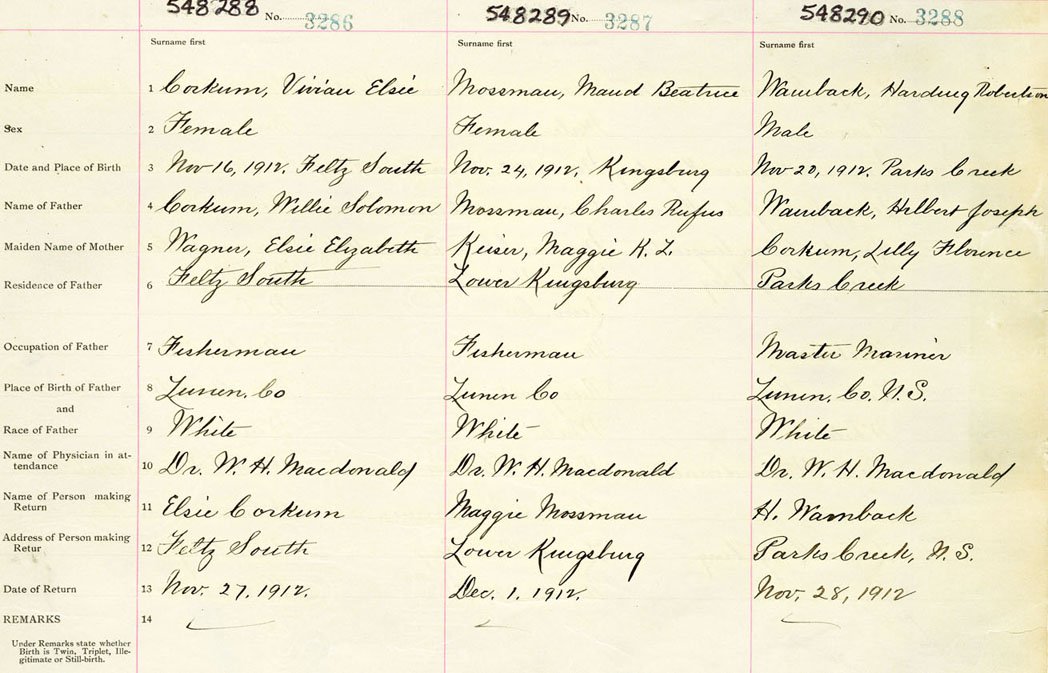 548288 No. 3286 548289 No. 3287 548290 No. 3288
Surname first Surname first Surname first
Name 1 Corkum, Vivian Elsie Mossman, Maud Beatrice Wamback, Harding Robertson
Sex 2 Female Female Male
Date and Place of Birth 3 Nov 16, 1912. Feltz South Nov. 24, 1912. Kingsburg Nov 20, 1912. Parks Creek
Name of Father 4 Corkum, Willie Solomon Mossman, Charles Rufus Wamback, Hilbert Joseph
Maiden Name of Mother 5 Wagner, Elsie Elizabeth Keiser, Maggie K. L. Corkum, Lilly Florence
Residence of Father 6 Feltz South Lower Kingsburg Parks Creek
Occupation of Father 7 Fisherman Fisherman Master Mariner
Place of Birth of Father 8 Lunen. Co Lunen Co Lunen. Co. N.S.
and
Race of Father 9 White White White
Name of Physician in at-
tendance 10 Dr. W. H. Macdonald Dr. W. H. Macdonald Dr. W. H. Macdonald
Name of Person making
Return 11 Elsie Corkum Maggie Mossman H. Wamback
Address of Person making
Retur 12 Feltz South Lower Kingsburg Parks Creek, N.S.
Date of Return 13 Nov. 27. 1912. Dec. 1. 1912. Nov. 28, 1912
REMARKS 14
Under Remarks state whether
Birth is Twin, Triplet, Ille-
gitimate or Still-birth.